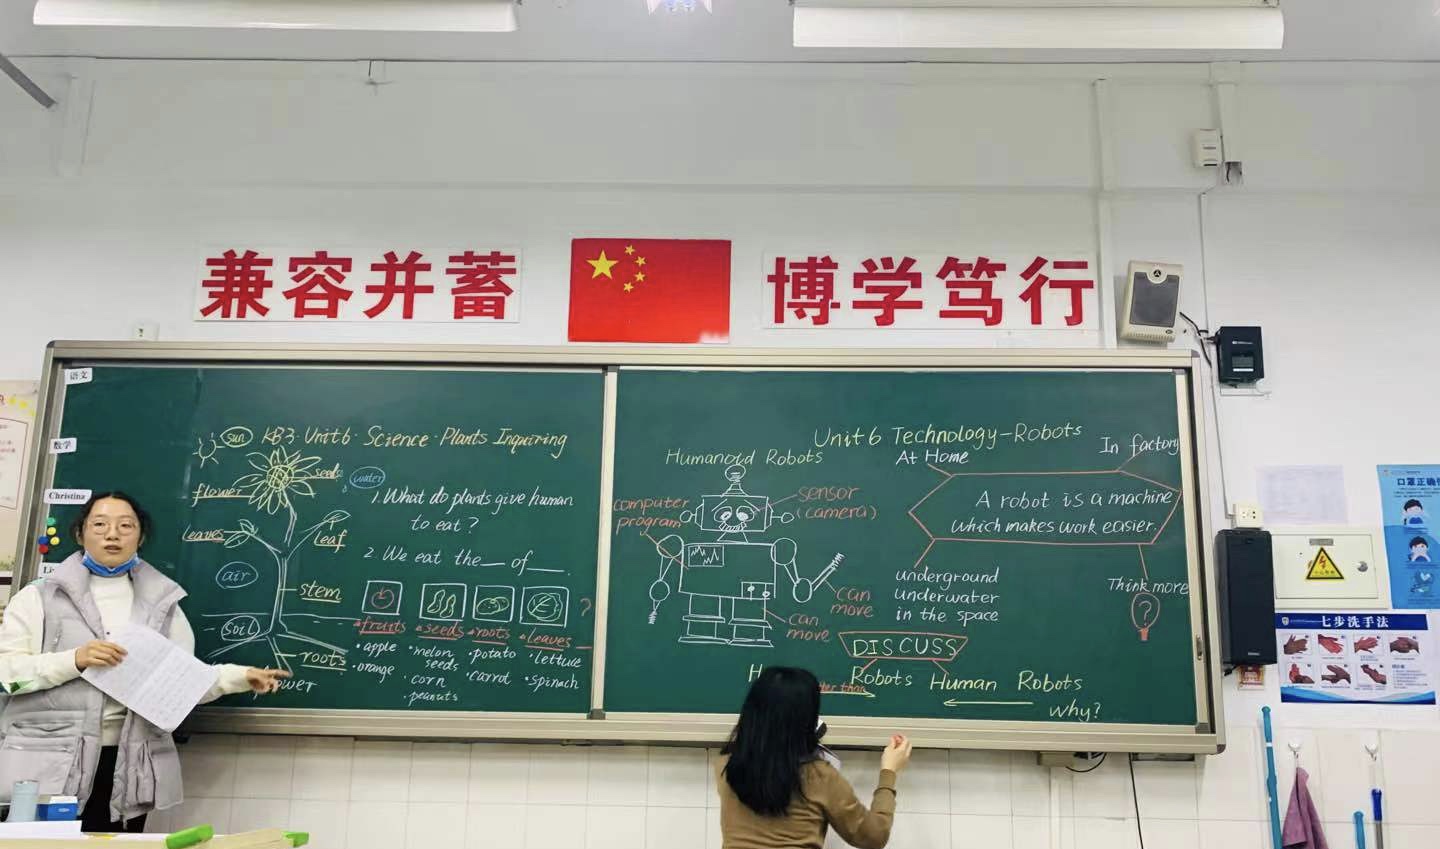 兼容并蓄
博学笃行
语文
数学
Christina
sun
KB3·Unit6·Science·Plants Inquiring
seeds
water
flower
leaves
leaf
air
stem
soil
roots
1. What do plants give human
to eat?
2. We eat the__ of__.
?
fruits
seeds
roots
leaves
apple
orange
melon
seeds
corn
peanuts
potato
carrot
lettuce
spinach
Unit6 Technology-Robots
Humanoid Robots
computer
program
sensor
(camera)
can
move
can
move
At Home
In factory
A robot is a machine
which makes work easier.
underground
underwater
in the space
Think more
?
DISCUSS
Robots
than
Human Robots
Why?
口罩正确
七步洗手法